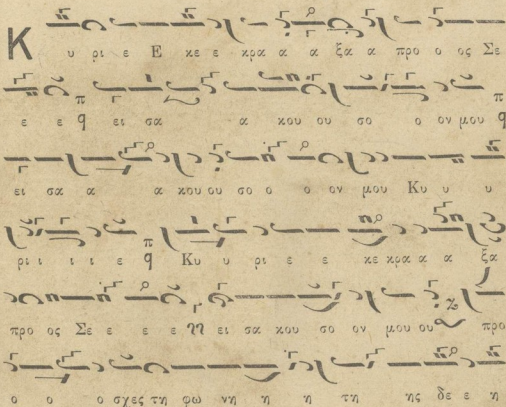 Κ υ ρι ε Ε κε ε κρα α α ξα α προ ο ος Σε
ε ε ει σα α κου ου σο ο ον μου
ει σα α α κου ου σο ο ο ον μου Κυ υ υ
ρι ι ι ι ε Κυ υ ρι ε ε κε κρα α α ξα
προ ος Σε ε ε ε ει σα κου σο ον μου ου προ
ο ο ο σχες τη φω νη η η τη ης δε ε η